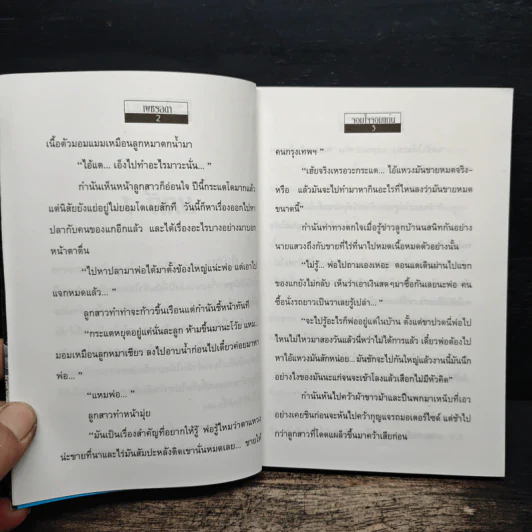 เพชรลดา
2
เนื้อตัวมอมแมมเหมือนลูกหมาตกน้ำมา
"ไอ้แต... เอ็งไปทำอะไรมาวะนั่น..."
กำนันเห็นหน้าลูกสาวก็อ่อนใจ ปีนี้กระแตโตมากแล้ว
แต่นิสัยยังแย่อยู่ไม่ยอมโตเลยสักที วันนี้ก็หาเรื่องออกไปหา
ปลากับคนของแกอีกแล้ว และได้เรื่องอะไรบางอย่างมาบอก
หน้าตาตื่น
"ไปหาปลามาพ่อได้มาตั้งข้องใหญ่แน่ะพ่อ แต่เอาไป
แจกหมดแล้ว..."
ลูกสาวทำท่าจะก้าวขึ้นเรือนแต่กำนันชี้หน้าทันที
"กระแตหยุดอยู่แค่นั่นละลูก ห้ามขึ้นมานะโว้ย แหม...
มอมเหมือนลูกหมาเชียว ลงไปอาบน้ำก่อนไปเดี๋ยวค่อยมาหา
พ่อ..."
"แหมพ่อ..."
ลูกสาวทำหน้ามุ่ย
"มันเป็นเรื่องสำคัญที่อยากให้รู้ พ่อรู้ไหมว่าตาแหวง
น่ะขายที่นาและไร่มันสัมปะหลังติดเขานั่นหมดเลย... ขายให้
จอมใจจอมแก่น
3
คนกรุงเทพฯ"
"เฮ้ยจริงเหรอวะกระแต... ไอ้แหวงมันขายหมดจริง-
หรือ แล้วมันจะไปทำมาหากินอะไรที่ไหนลงว่ามันขายหมด
ขนาดนี้"
กำนันทำท่าทางตกใจเมื่อรู้ข่าวลูกบ้านนสนิทกันอย่าง
นายแสวงถึงกับขายที่ไร่ที่นาไปหมดเนื้อหมดตัวอย่างนั้น
"ไม่รู้... พ่อไปถามเองเหอะ ตอนแตเดินผ่านไปแขก
ของแกยังไม่กลับ เห็นว่าเอาเงินสดๆมาซื้อกันเลยนะพ่อ คน
ซื้อนั่งรถยาวเป็นวาเลยรู้เปล่า..."
"จะไปรู้อะไรก็พ่ออยู่แต่ในบ้าน ตั้งแต่ขาปวดนี่พ่อไป
ไหนไม่ไหวมาสองวันแล้วนี่หว่าไม่ได้การแล้ว เดี๋ยวพ่อต้องไป
หาไอ้แหวงมันสักหน่อย... มันชักจะไปกันใหญ่แล้วงานนี้มันนึก
อย่างไงของมันนะแก่จนจะเข้าโลงแล้วเสือกไม่มีหัวคิด"
กำนันหันไปคว้าผ้าขาวม้าและปืนพกมาเหน็บที่เอว
อย่างเคยชินก่อนจะหันไปคว้ากุญแจรถมอเตอร์ไซค์ แต่ช้าไป
กว่าลูกสาวที่โดดแผล็วขึ้นมาคว้าเสียก่อน